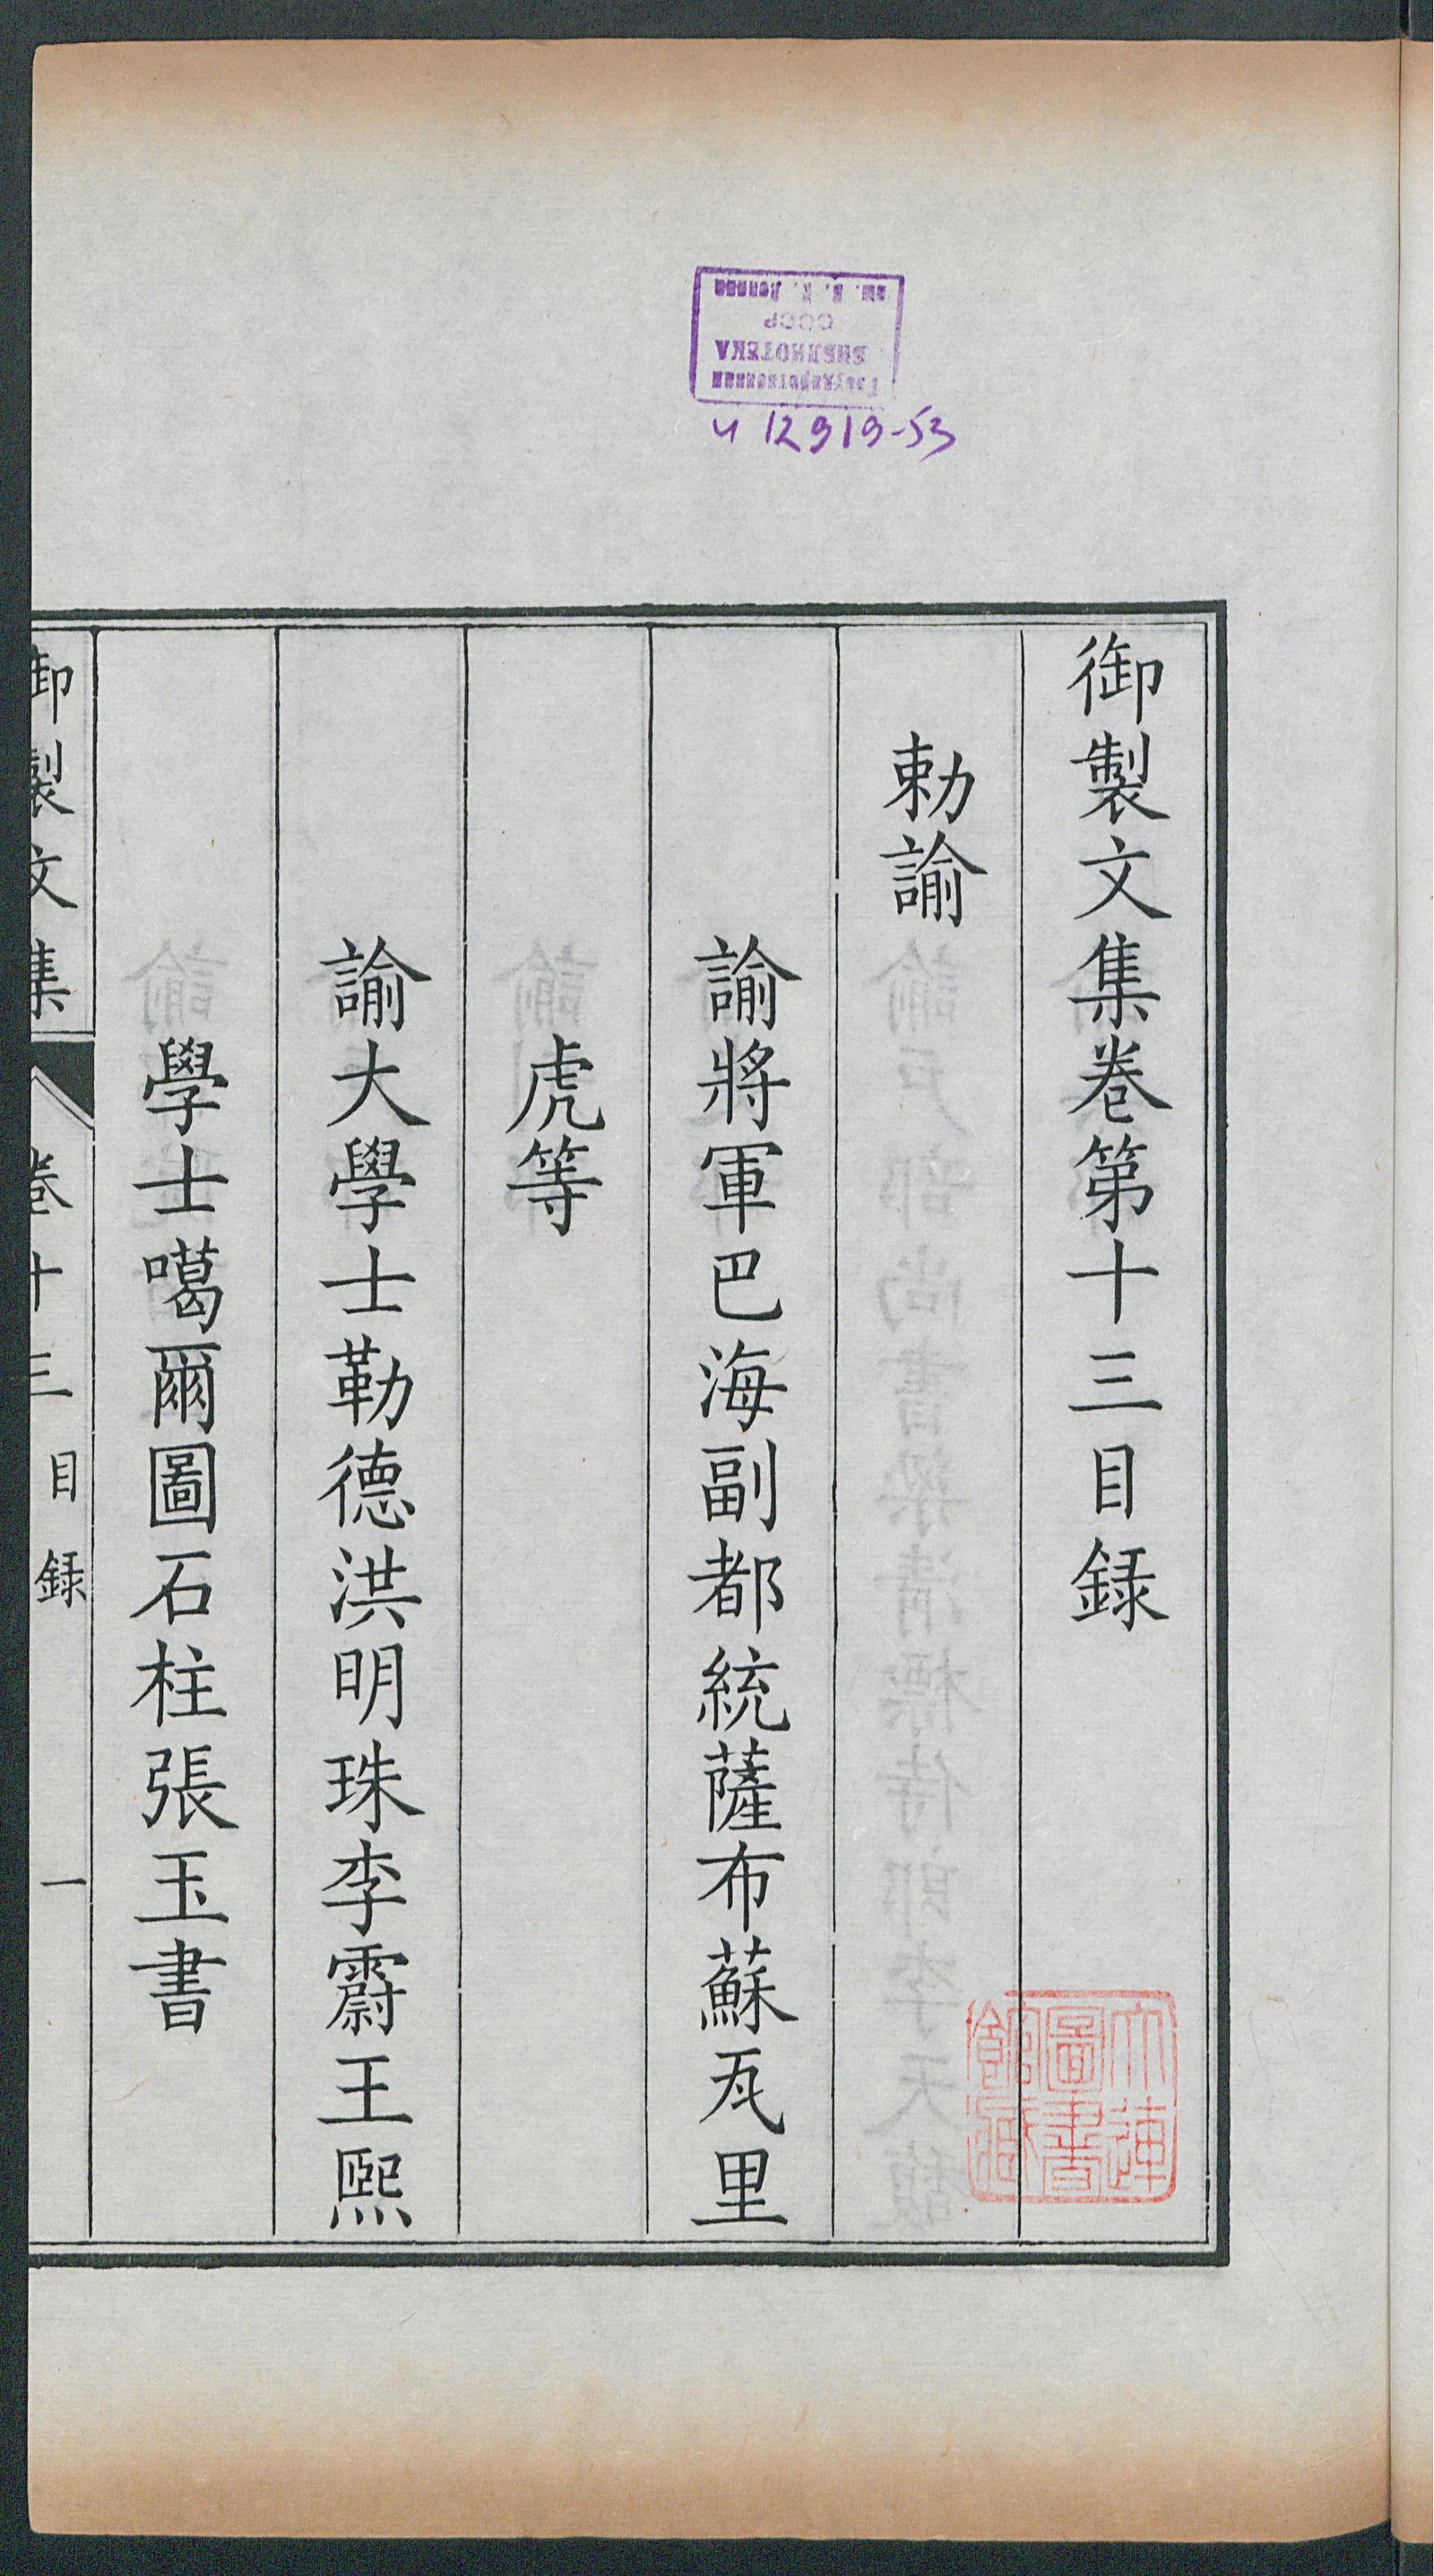 御製文集卷第十三目録
勅諭
諭將軍巴海副都統薩布蘇瓦里
虎等
諭大學士勒德洪明珠李霨王熙
學士噶爾圖石柱張玉書
御製文集 卷十三 目録 一
大連
圖書
館藏
Государственная
БИБЛИОТЕКА
СССР
им. В. И. Ленина
И 12919-53